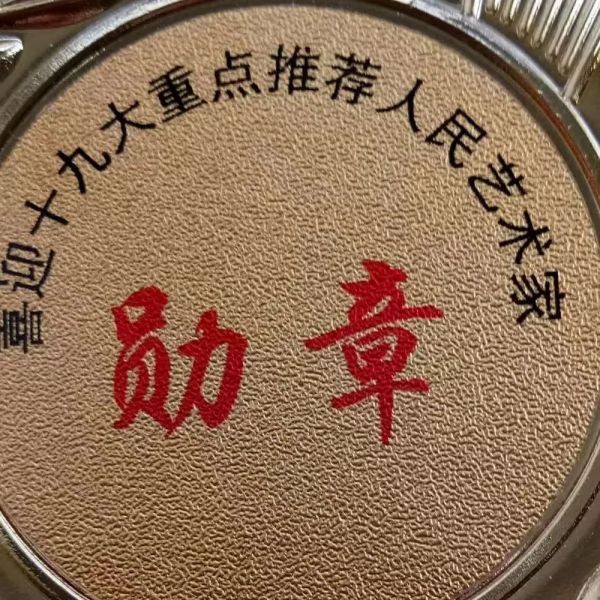 喜迎十九大重点推荐人民艺术家
勋章